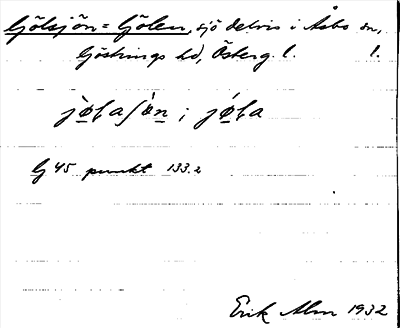 Gölsjön = Gölen, sjö delvis i Åsbo sn,
Göstrings hd, Österg. l. 1.
jø̀lasø̀n ; jǿla
G 45 punkt 133.2
Erik Alm 1932